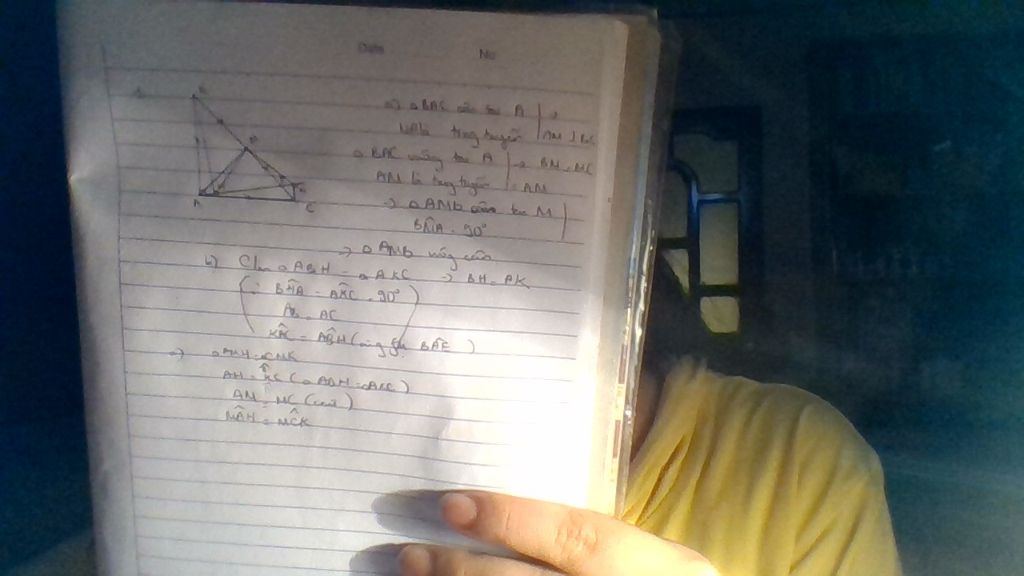 Date No
a) △BAC cân tại A | →
MA là trung tuyến | AM ⊥ BC
△ BAC vuông tại A | → BM = MC
AM là trung tuyến | = AM
→ △AMB cân tại M |
BMA = 90°
→ △AMB vuông cân
b) C/m △ABH = △AKC → BH = AK
BHA = AKC = 90°
AB = AC
KAC = ABH (cùng BAE)
c) △MAH = CMK
AH = KC (△ABH = AKC)
AM = MC (cmt)
MAH = MCK
A
C